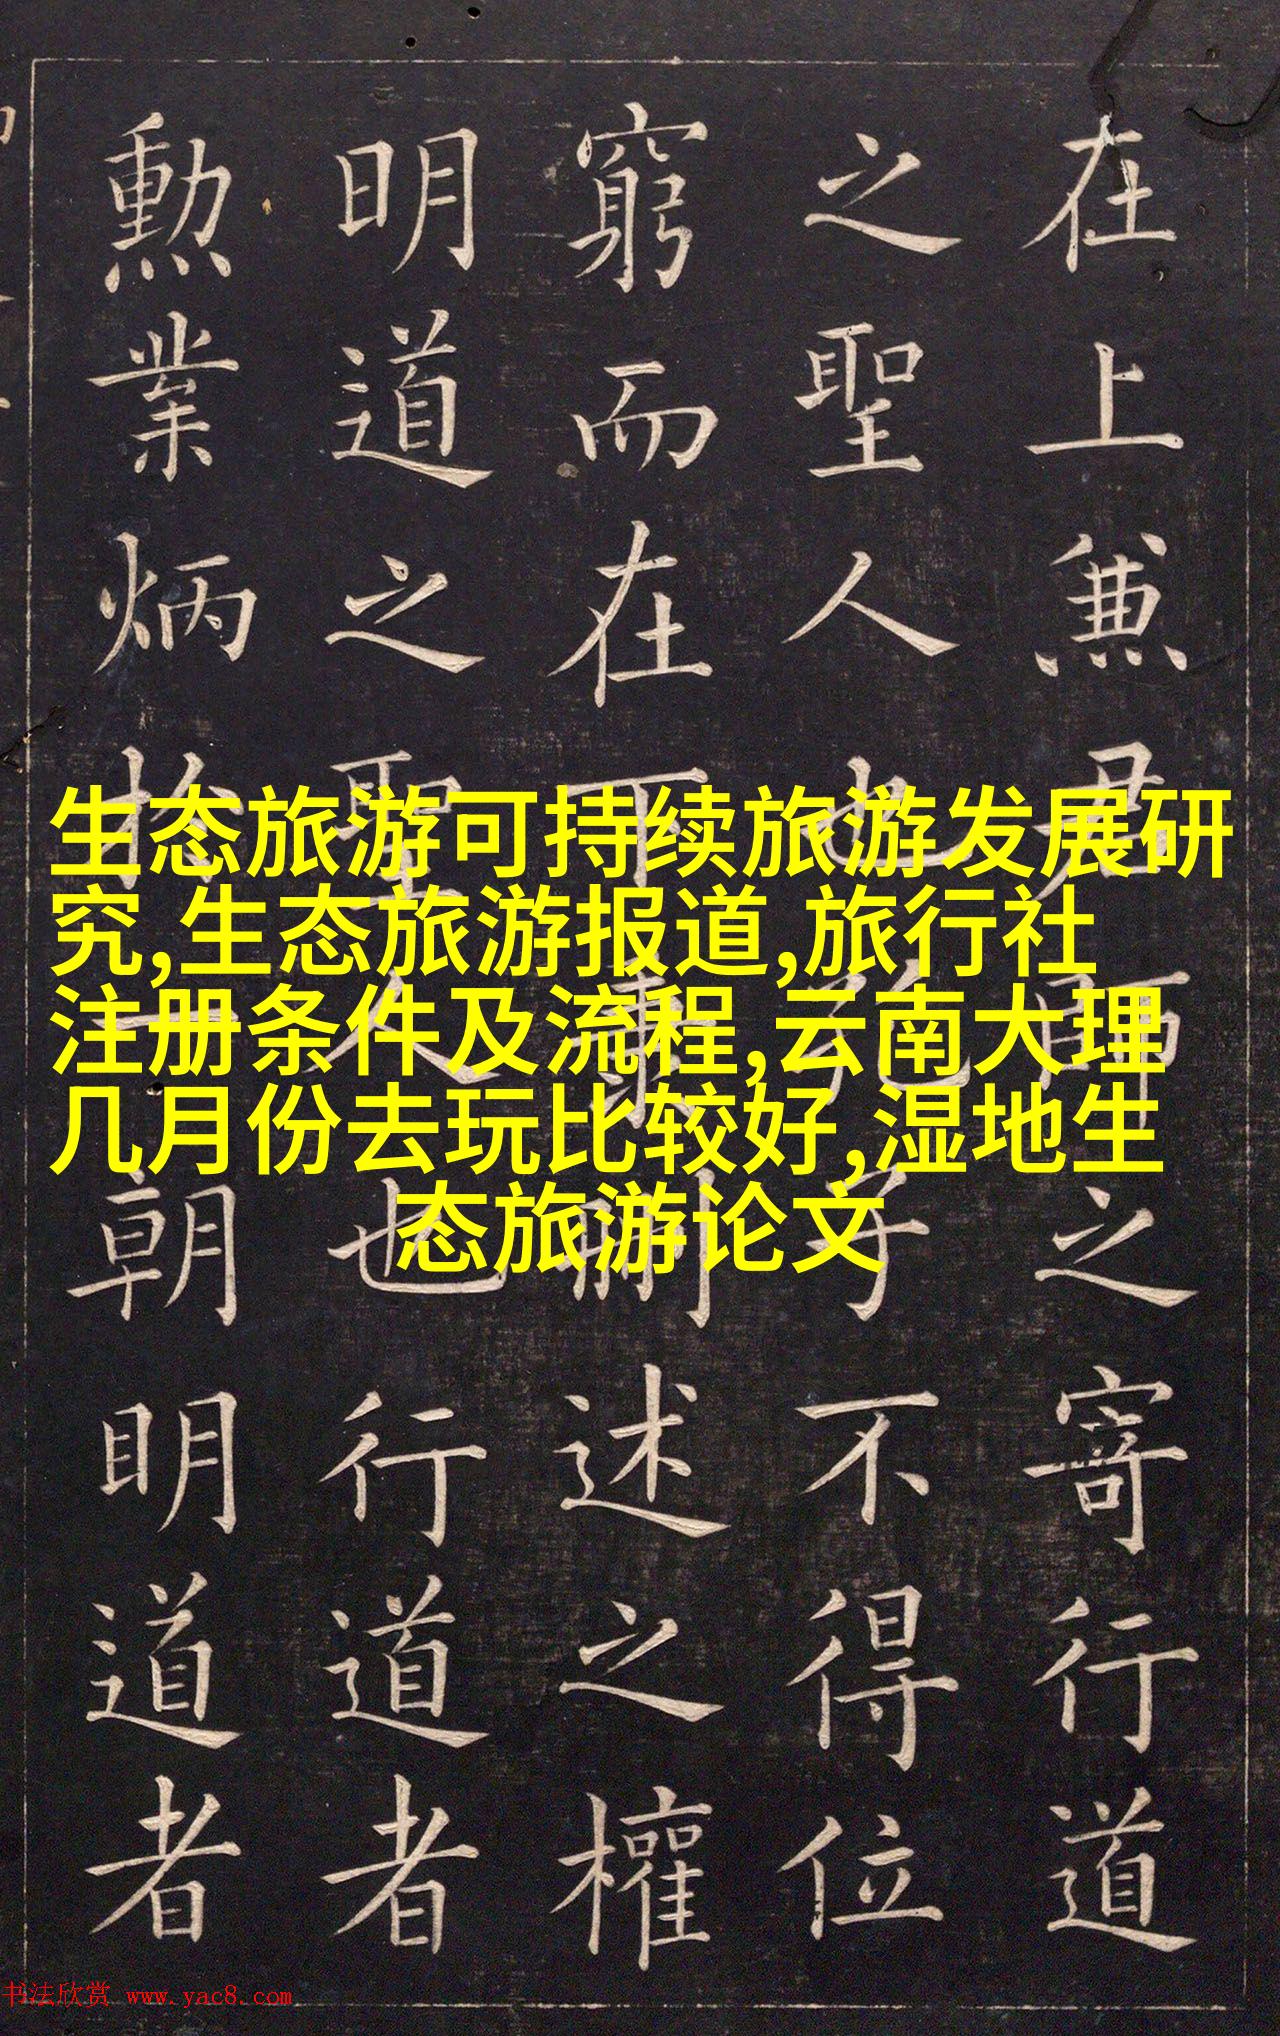 在上兼君師之寄行道
之聖人也孔子不得位
窮而在下兼刪述之權
明道之聖人也行道者
勳業炳於一朝明道者
生态旅游可持续旅游发展研
究,生态旅游报道,旅行社
注册条件及流程,云南大理
几月份去玩比较好,湿地生
态旅游论文
书法欣赏 www.yac8.com